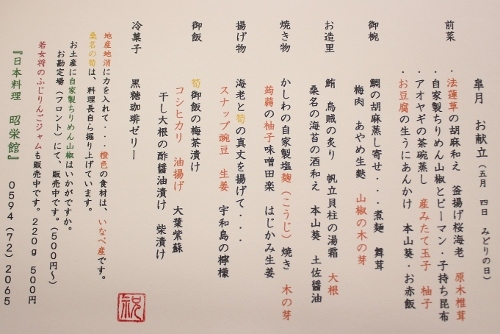 皐月 お献立(五月 四日 みどりの日)
前菜 ・法蓮草の胡麻和え 釜揚げ桜海老 原木椎茸
・自家製ちりめん山椒とピーマン・子持ち昆布
・アオヤギの茶碗蒸し 産みたて玉子 柚子
・お豆腐の生うにあんかけ 本山葵・お赤飯
御椀 鯛の胡麻蒸し寄せ・・煮麺 舞茸
梅肉 あやめ生麩 山椒の木の芽
お造里 鮪 烏賊の炙り 帆立貝柱の湯霜 大根
桑名の海苔の酒和え 本山葵 土佐醤油
焼き物 かしわの自家製塩麹(こうじ)焼き 木の芽
蒟蒻の柚子味噌田楽 はじかみ生姜
揚げ物 海老と筍の真丈を揚げて・・・
スナップ豌豆 生姜 宇和島の檸檬
御飯 筍御飯の梅茶漬け
コシヒカリ 油揚げ 大葉紫蘇
干し大根の酢醤油漬け 柴漬け
冷菓子 黒糖珈琲ゼリー
地産地消に力を入れて・・・橙色の食材は、いなべ産です。
桑名の筍は、料理長自ら掘り上げています。
お土産に自家製ちりめん山椒はいかがですか。
お勘定場(フロント)にて、販売中です。(500円~)
若女将のふじりんごジャムも販売中です。220g 500円
『日本料理 昭栄館』 0594(72)2065
祝